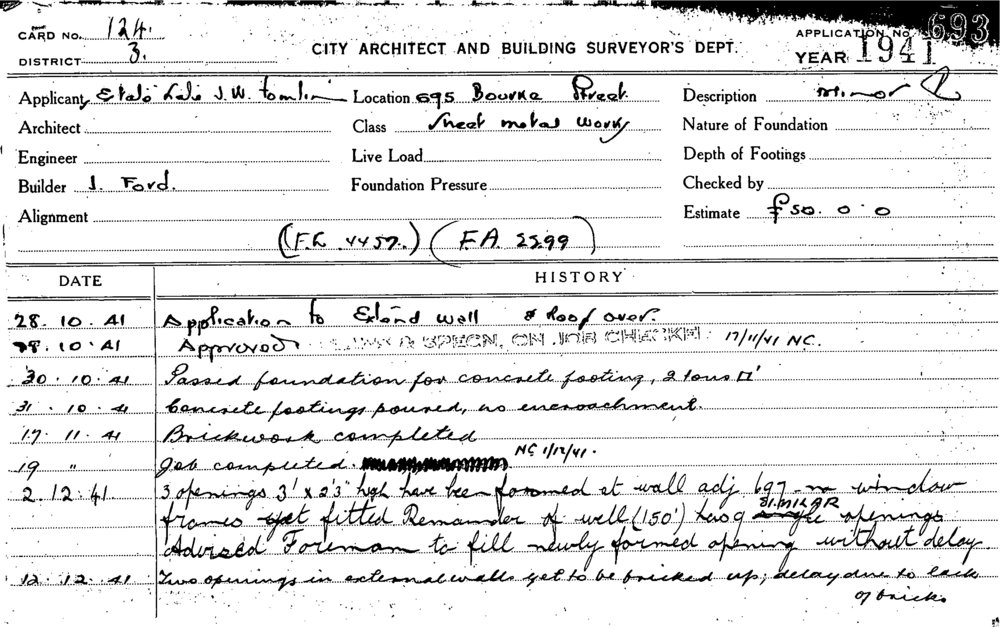 CARD No. 124.
DISTRICT 3.
CITY ARCHITECT AND BUILDING SURVEYOR'S DEPT.
APPLICATION No. 693
YEAR 1941
Applicant Estate late J.W. Tomlin
Location 695 Bourke Street
Description Minor
Architect
Class Sheet metal works
Nature of Foundation
Engineer
Live Load
Depth of Footings
Builder J. Ford.
Foundation Pressure
Checked by
Alignment
Estimate £50. 0. 0
(F.L. 4457.) (F.A. 2599)
DATE
HISTORY
28. 10. 41 Application to Extend wall & Roof over.
28. 10. 41 Approved & SPECN. ON JOB CHECKED 17/11/41 NC.
30. 10. 41 Passed foundation for concrete footing, 2 tons □'
31. 10. 41 Concrete footings poured, no encroachment.
17. 11. 41 Brickwork completed
19 " Job completed. NC 1/12/41.
2. 12. 41 3 openings 3' x 2'3" high have been formed at wall adj 697 - no window
frames yet fitted Remainder of wall (150') has 9 SIMILAR openings
Advised Foreman to fill newly formed opening without delay
12. 12. 41 Two openings in external walls yet to be bricked up; delay due to lack
of bricks